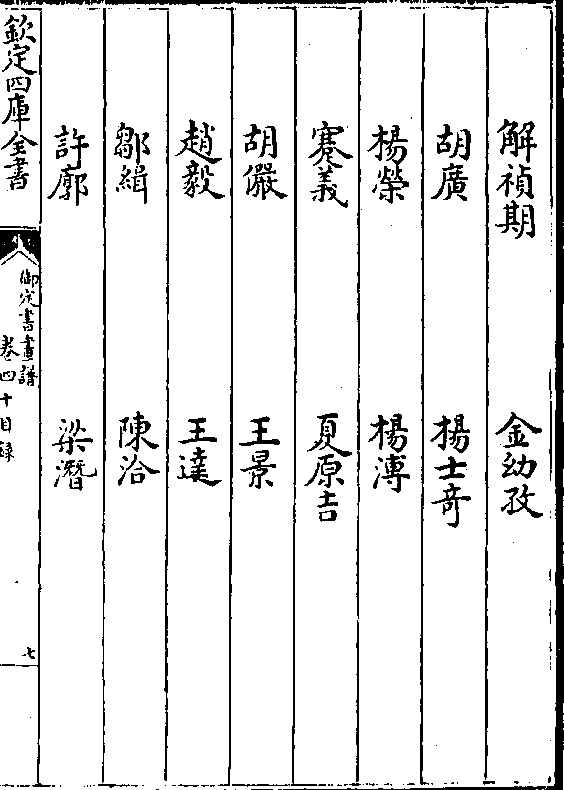 解禎期　金幼孜
胡廣　楊士奇
楊榮　楊溥
蹇義　夏原吉
胡儼　王景
趙毅　王達
鄒緝　陳洽
許廓　梁潛
欽定四庫全書
御定書畫譜
卷四十目録
七